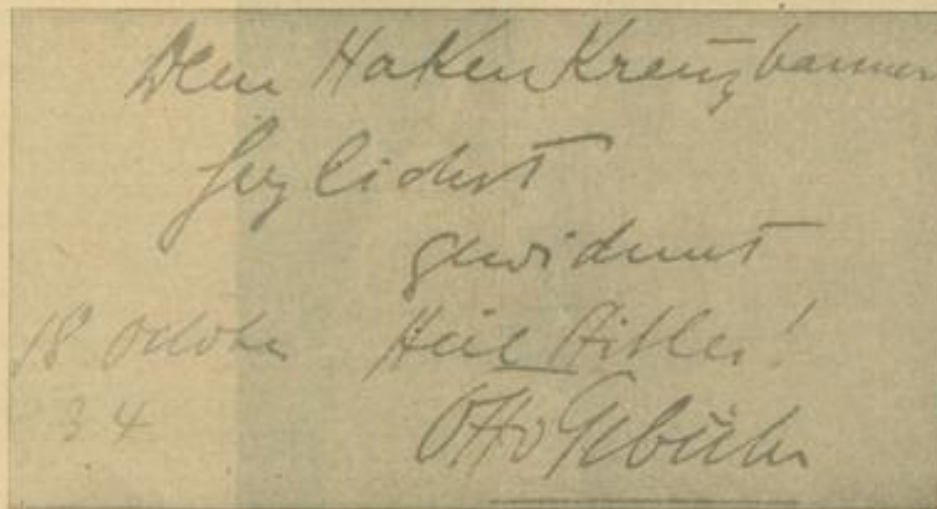 Dem HakenKreuzbanner
herzlichst
gewidmet
18 October Heil Hitler!
34
Otto Gebühr